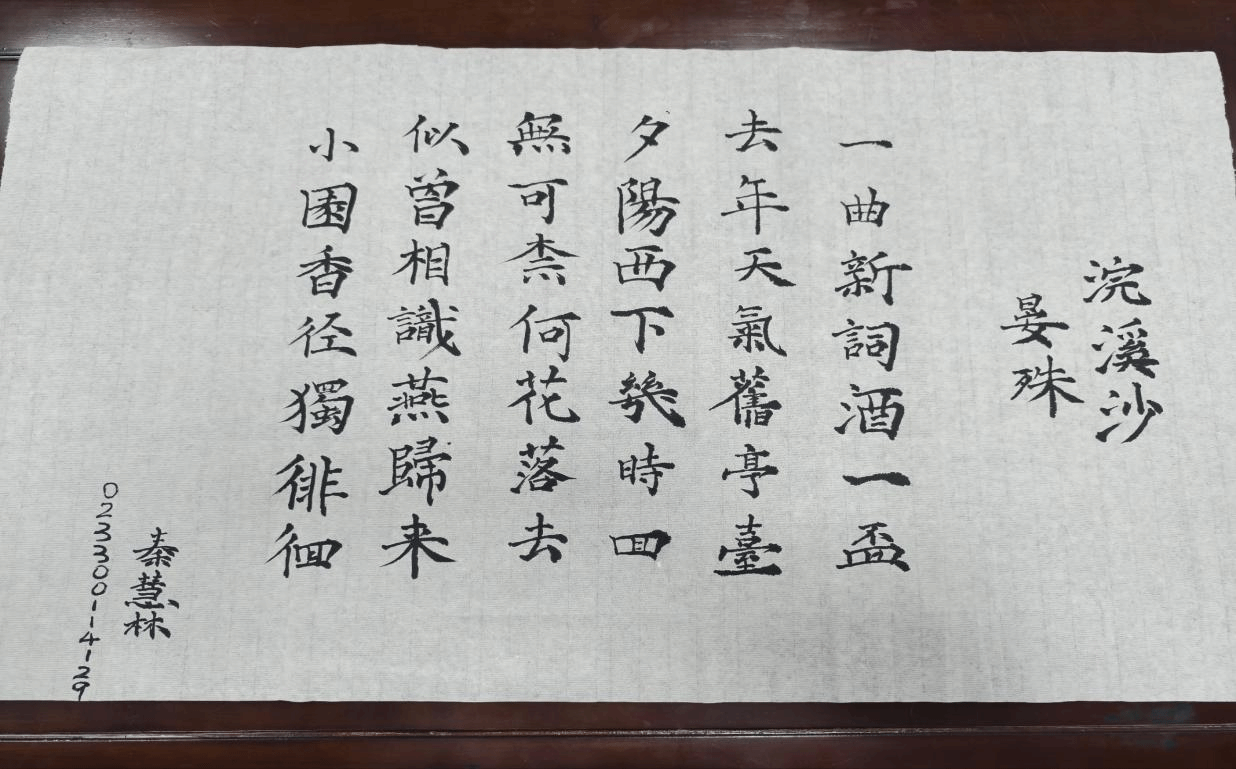 浣溪沙
晏殊
一曲新詞酒一盃
去年天氣舊亭臺
夕陽西下幾時囬
無可柰何花落去
似曾相識燕歸来
小園香径獨徘徊
秦慧林
023300114129